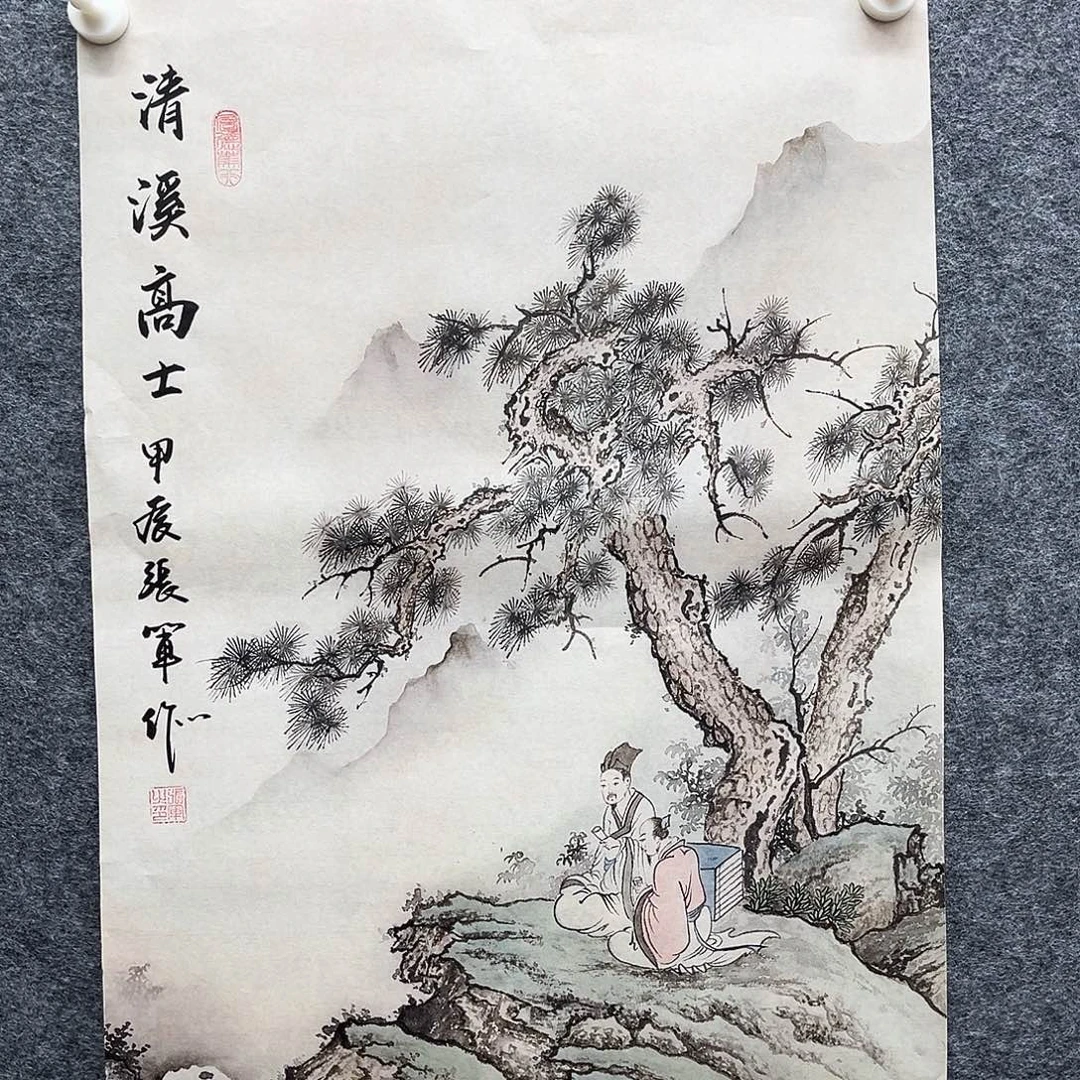 清溪高士 甲辰張軍作